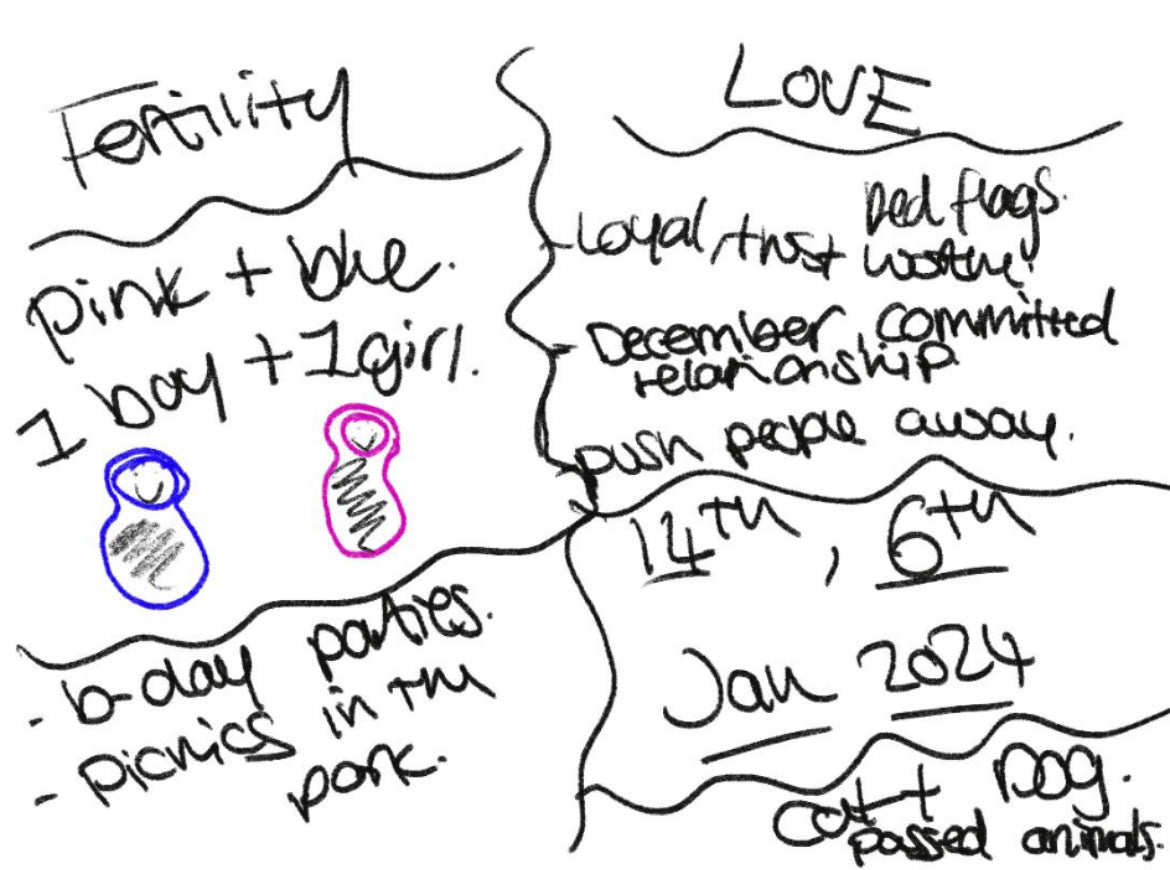 Fertility
pink + blue.
1 boy + 1 girl.
- b-day parties.
- picnics in the
park.
LOVE
Red flags.
- Loyal, trust worthy.
- December, committed
relationship
- push people away.
14th, 6th
Jan 2024
Cat + Dog.
passed animals.